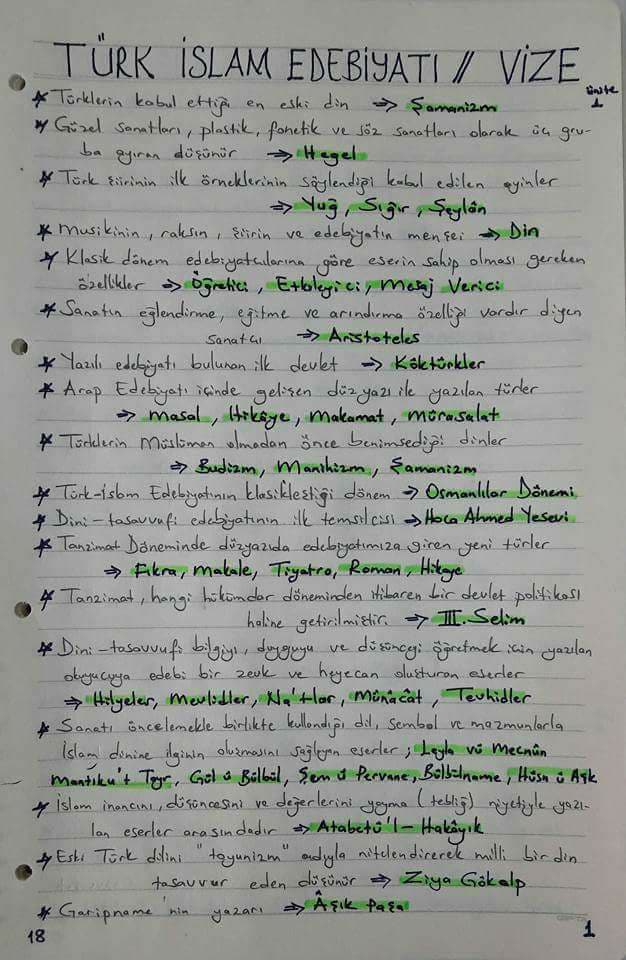 TÜRK İSLAM EDEBİYATI // VİZE
ünite 1
★ Türklerin kabul ettiği en eski din ⇒ Şamanizm
★ Güzel sanatları, plastik, fonetik ve söz sanatları olarak üç gru-
ba ayıran düşünür ⇒ Hegel
★ Türk şiirinin ilk örneklerinin söylendiği kabul edilen ayinler
⇒ Yuğ, Sığır, Şeylân
★ Musikinin, raksın, şiirin ve edebiyatın menşei ⇒ Din
★ Klasik dönem edebiyatçılarına göre eserin sahip olması gereken
özellikler ⇒ Öğretici, Etkileyici, Mesaj Verici
★ Sanatın eğlendirme, eğitme ve arındırma özelliği vardır diyen
sanatçı ⇒ Aristoteles
★ Yazılı edebiyatı bulunan ilk devlet ⇒ Köktürkler
★ Arap Edebiyatı içinde gelişen düzyazı ile yazılan türler
⇒ Masal, Hikâye, Makamat, Mürasalat
★ Türklerin Müslüman olmadan önce benimsediği dinler
⇒ Budizm, Manihizm, Şamanizm
★ Türk-İslam Edebiyatının klasikleştiği dönem ⇒ Osmanlılar Dönemi
★ Dini-tasavvufi edebiyatının ilk temsilcisi ⇒ Hoca Ahmed Yesevi
★ Tanzimat Döneminde düzyazıda edebiyatımıza giren yeni türler
⇒ Fıkra, Makale, Tiyatro, Roman, Hikaye
★ Tanzimat, hangi hükümdar döneminden itibaren bir devlet politikası
haline getirilmiştir. ⇒ III. Selim
★ Dini-tasavvufi bilgiyi, duyguyu ve düşünceyi öğretmek için yazılan
okuyucuya edebi bir zevk ve heyecan oluşturan eserler
⇒ Hilyeler, Mevlidler, Na'tlar, Münâcât, Tevhidler
★ Sanatı öncelemekle birlikte kullandığı dil, sembol ve mazmunlarla
İslam dinine ilginin oluşmasını sağlayan eserler, Leyla vü Mecnûn
Mantıku't Tayr, Gül ü Bülbül, Şem ü Pervane, Bülbülname, Hüsn ü Aşk
★ İslam inancını, düşüncesini ve değerlerini yayma (tebliğ) niyetiyle yazı-
lan eserler arasındadır ⇒ Atabetü'l-Hakâyık
★ Eski Türk dilini "toyunizm" adıyla nitelendirerek milli bir din
tasavvur eden düşünür ⇒ Ziya Gökalp
★ Garipname'nin yazarı ⇒ Âşık Paşa
18
1